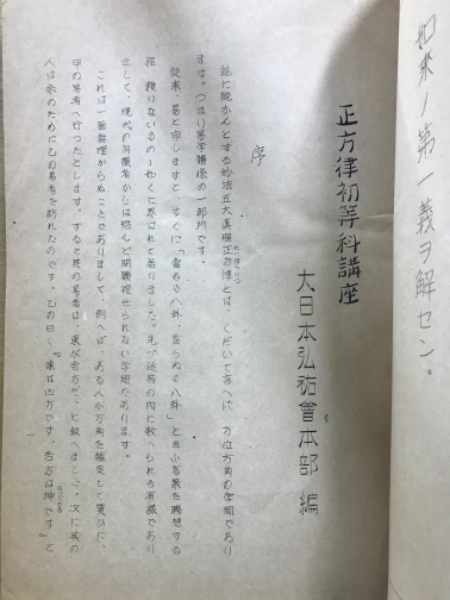 如来ノ第一義ヲ解セン。
正方律初等科講座
大日本弘祐會本部編
序
茲に説かんとする妙法五大真理正方律とは、くだいて言へば、方位方角の学問であり
ます。つまり易学体系の一部門です。
従来、易と申しますと、すぐに「当るも八卦、当らぬも八卦」と云ふ言葉を聯想する
程、頼りないものゝ如くに思はれて居りました。先づ迷信の内に数へられる有様であり
まして、現代の有識者からは殆んど問題視せられない学問であります。
これは一面無理からぬことでありまして、例へば、ある人が方角を鑑定して貰ひに、
甲の易者へ行つたとします。すると其の易者は、東が吉方だ、と教へました。次に其の
人は念のために乙の易者を訪れたのです。乙の曰く『東は凶方です。吉方は坤です』と